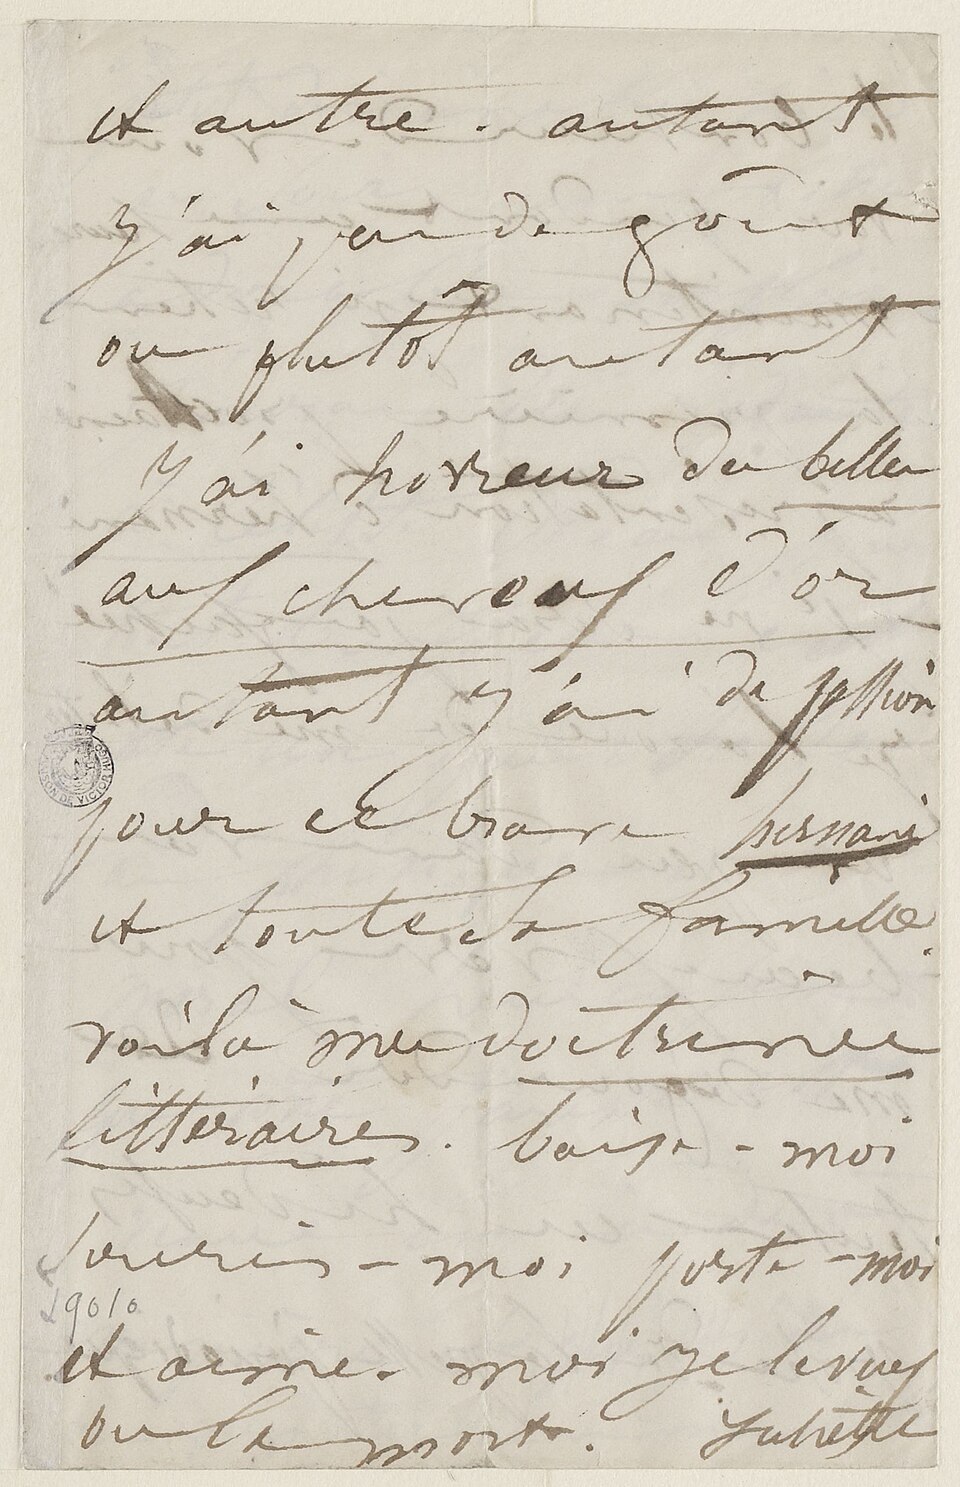 et autre. autant
j'ai peu de goût
ou plutôt autant
j'ai horreur de belle
aux cheveux d'or
autant j'ai de passion
pour ce brave hernani
et toute sa famille.
voilà mes doctrines
littéraires. baise-moi
souris-moi porte-moi
et aime-moi je le veux
ou la mort. Juliette
MAISON DE VICTOR HUGO